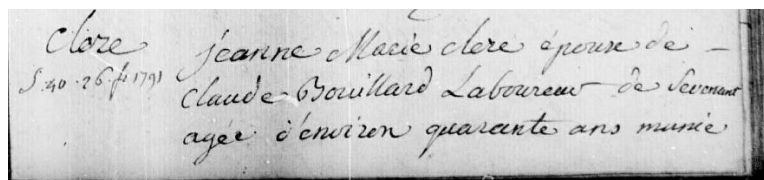 Clere
S. 40. 26. fs 1791
jeanne Marie clere épouse de
Claude Bouillard Laboureur de Sevenant
agée d'environ quarante ans munie